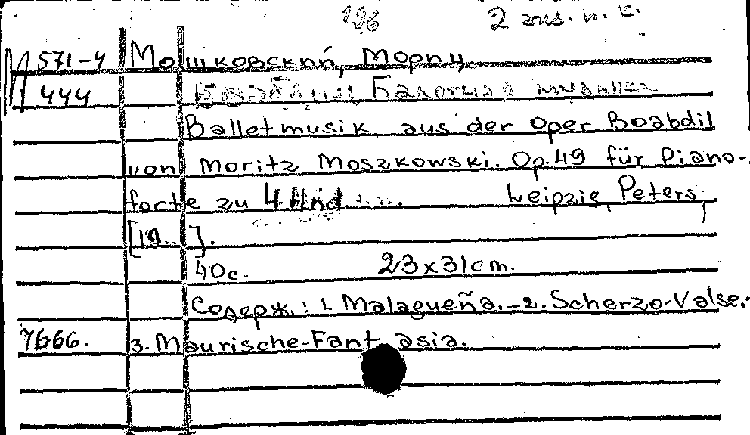 196 2 экз. н. с.
М 571-4 Мошковский, Мориц
444 Боабдил. Балетная музыка
Balletmusik aus der Oper Boabdil
von Moritz Moszkowski. Op. 49 für Piano-
forte zu 4 Händ Leipzig, Peters,
[19 ].
40 с. 23x31 cm.
Содерж.: 1. Malagueña. - 2. Scherzo-Valse. -
7666. 3. Maurische-Fantasia.